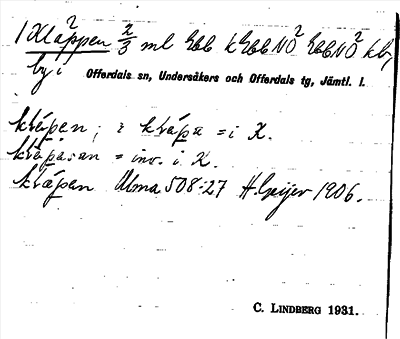 1 Kläppen 2/3 ml
by i Offerdals sn, Undersåkers och Offerdals tg, Jämtl. l.
kläpen; i kläpa = i K.
kläpasan = inv. i K.
kläpen Ulma 508:27 H. Geijer 1906.
C. LINDBERG 1931.